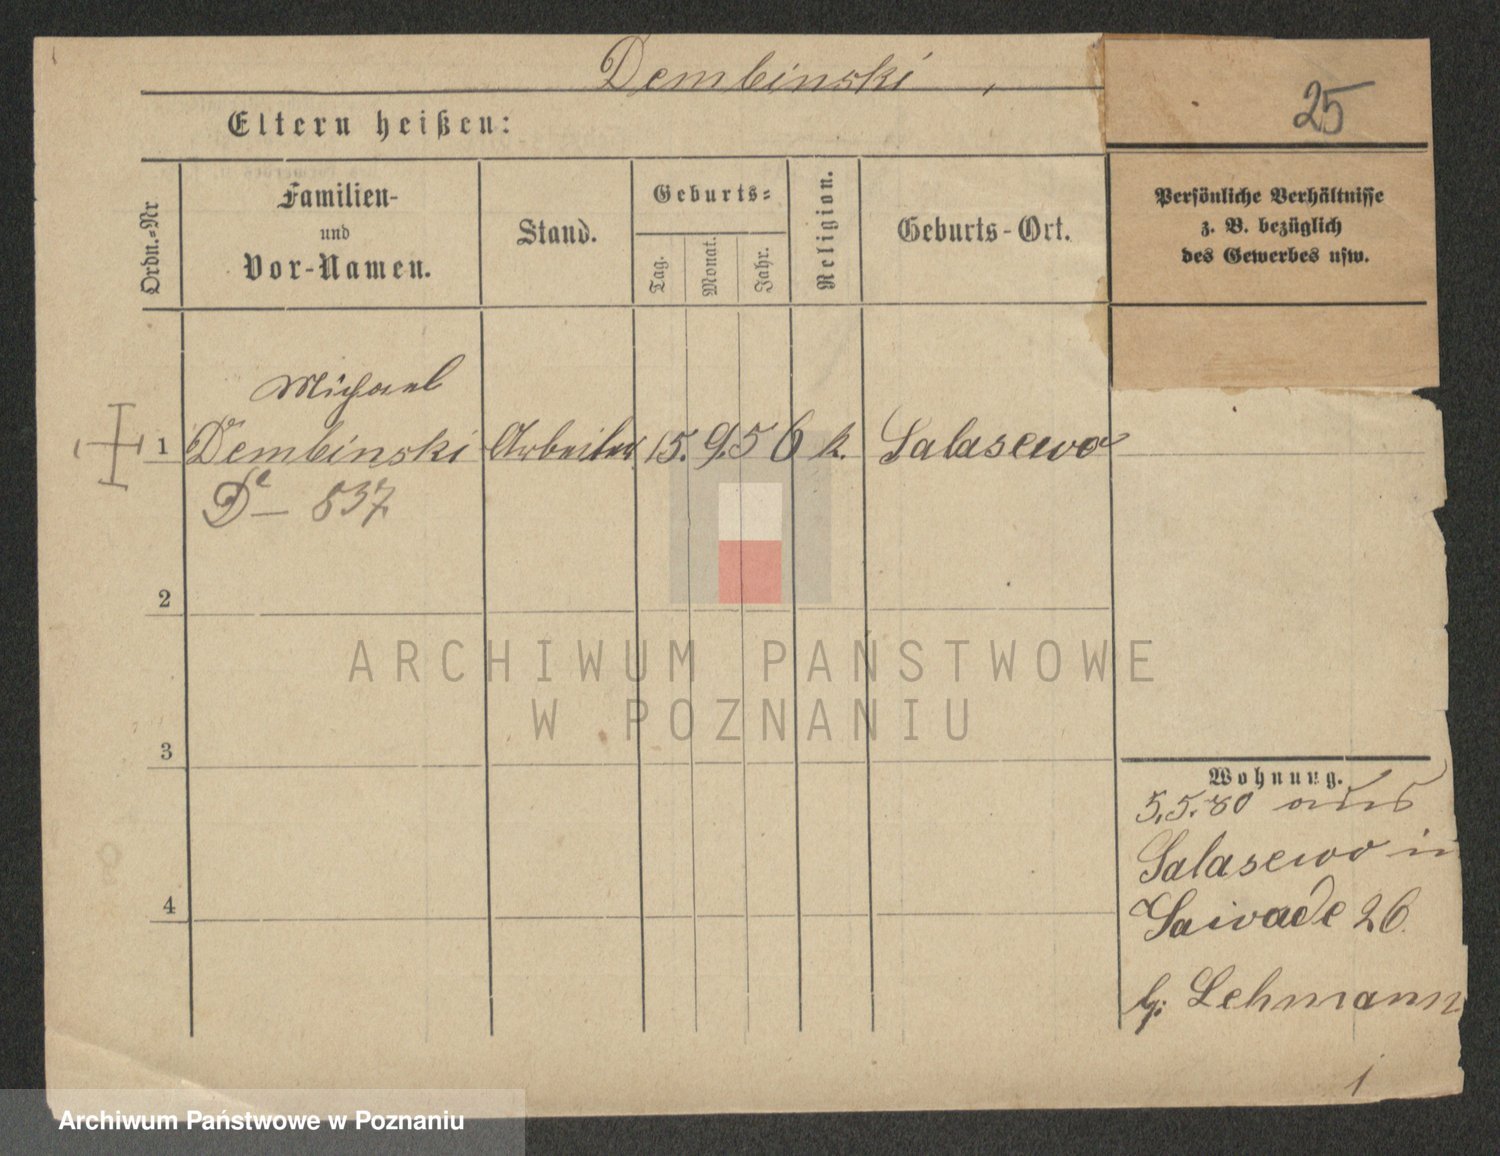 Dembinski
25
Eltern heißen:
Ordn.-Nr
Familien-
und
Vor-Namen.
Stand.
Geburts-
Tag.
Monat.
Jahr.
Religion.
Geburts-Ort.
Persönliche Verhältnisse
z. B. bezüglich
des Gewerbes usw.
Michael
1 Dembinski Arbeiter 15. 9. 56 k. Salasewo
De — 537
2
3
4
ARCHIWUM PAŃSTWOWE
W POZNANIU
Wohnung.
5.5.80 aus
Salasewo in
26.
b. Lehmann
Archiwum Państwowe w Poznaniu